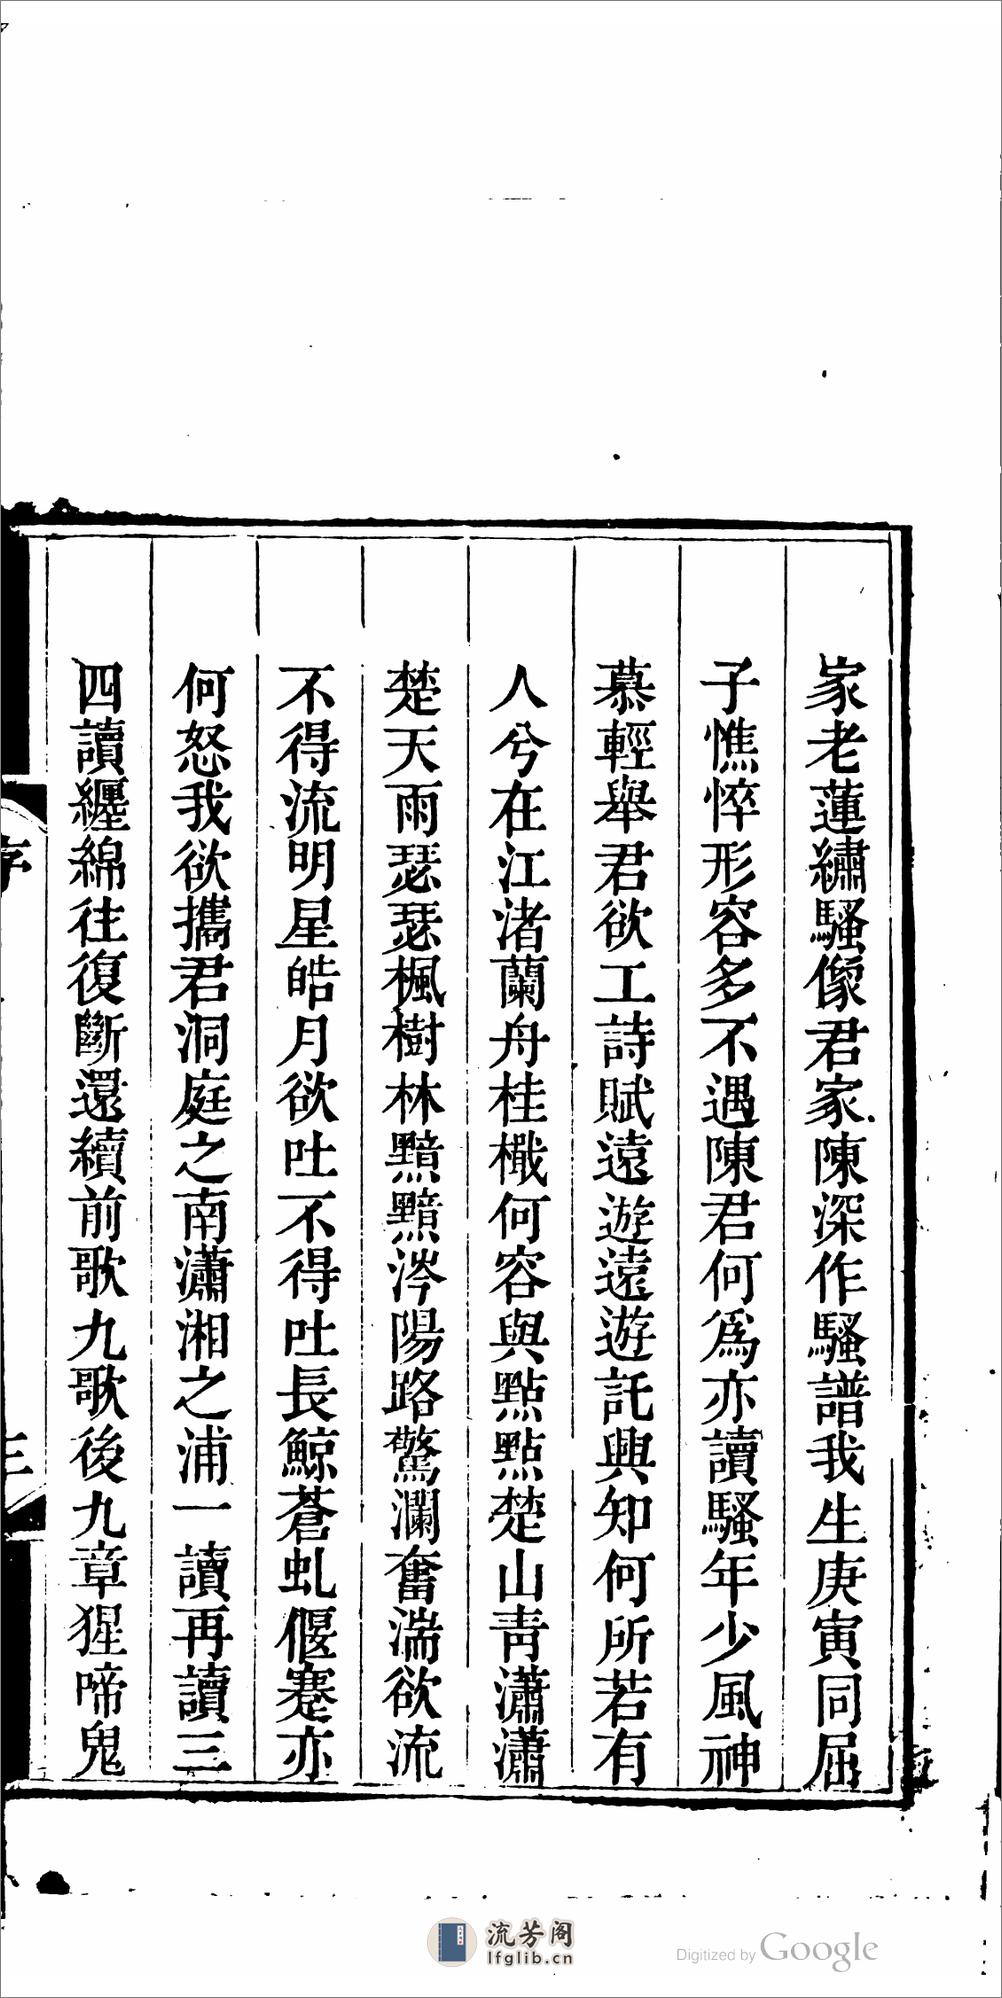 家老蓮繡騷像君家陳深作騷譜我生庚寅同屈
子憔悴形容多不遇陳君何爲亦讀騷年少風神
慕輕舉君欲工詩賦遠遊遠遊託興知何所若有
人兮在江渚蘭舟桂檝何容與點點楚山青瀟瀟
楚天雨瑟瑟楓樹林黯黯涔陽路驚瀾奮湍欲流
不得流明星皓月欲吐不得吐長鯨蒼虬偃蹇亦
何怒我欲攜君洞庭之南瀟湘之浦一讀再讀三
四讀纒綿往復斷還續前歌九歌後九章猩啼鬼
序
三
流芳阁
lfglib.cn
Digitized by Google